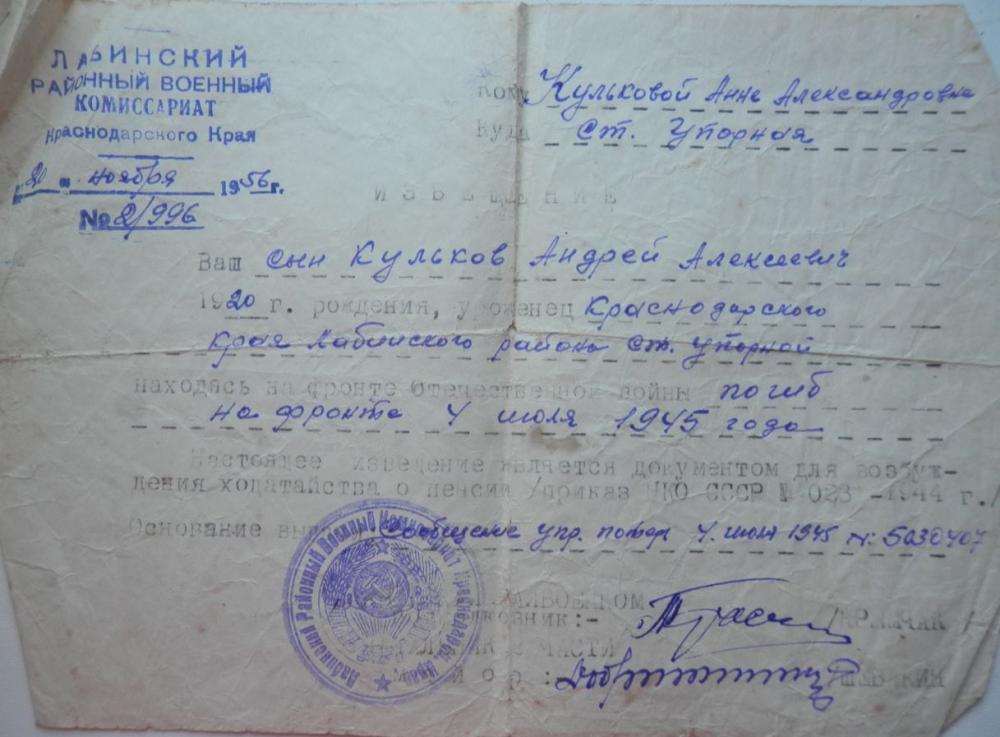 ЛАБИНСКИЙ
РАЙОННЫЙ ВОЕННЫЙ
КОМИССАРИАТ
Краснодарского Края
"20" ноября 1956 г.
№ 2/996
Кому Кульковой Анне Александровне
Куда ст. Упорная
ИЗВЕЩЕНИЕ
Ваш сын Кульков Андрей Алексеевич
1920 г. рождения, уроженец Краснодарского
края Лабинского района ст. Упорной
находясь на фронте Отечественной войны погиб
на фронте 4 июля 1945 года
Настоящее извещение является документом для возбуж-
дения ходатайства о пенсии /приказ НКО СССР № 023 -1944 г./
Основание Сообщение упр. потерь 4. июля 1945 №: 5030407
РАЙВОЕНКОМ
:-
2 ЧАСТИ
майор:
Лабинский Районный Военный Комиссариат Краснодарск. Края